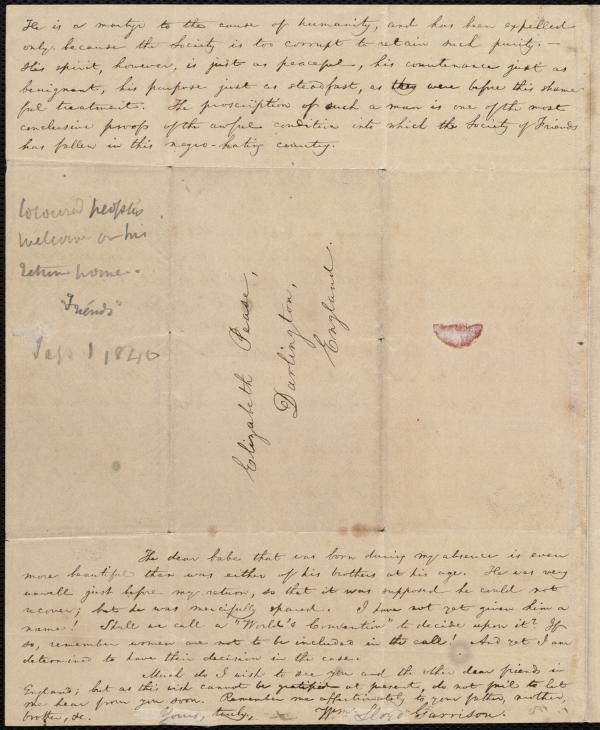 He is a martyr to the cause of humanity, and has been expelled
only because the Society is too corrupt to retain such purity.—
His spirit, however, is just as peaceful, his countenance just as
benignant, his purpose just as steadfast, as they were before this shame-
ful treatment. The proscription of such a man is one of the most
conclusive proofs of the awful condition into which the Society of Friends
has fallen in this negro-hating country.
Coloured people's
welcome on his
return home.
"Friends"
Sept 1 1840
Elizabeth Pease,
Darlington,
England.
The dear babe that was born during my absence is even
more beautiful than was either of his brothers at his age. He was very
unwell just before my return, so that it was supposed he could not
recover; but he was mercifully spared. I have not yet given him a
name! Shall we call a "World's Convention" to decide upon it? If
so, remember women are not to be included in the call! And yet I am
determined to have their decision in the case.
Much do I wish to see you and the other dear friends in
England; but as this wish cannot be gratified at present, do not fail to let
me hear from you soon. Remember me affectionately to your father, mother,
brother, &c. Yours, truly, Wm. Lloyd Garrison.